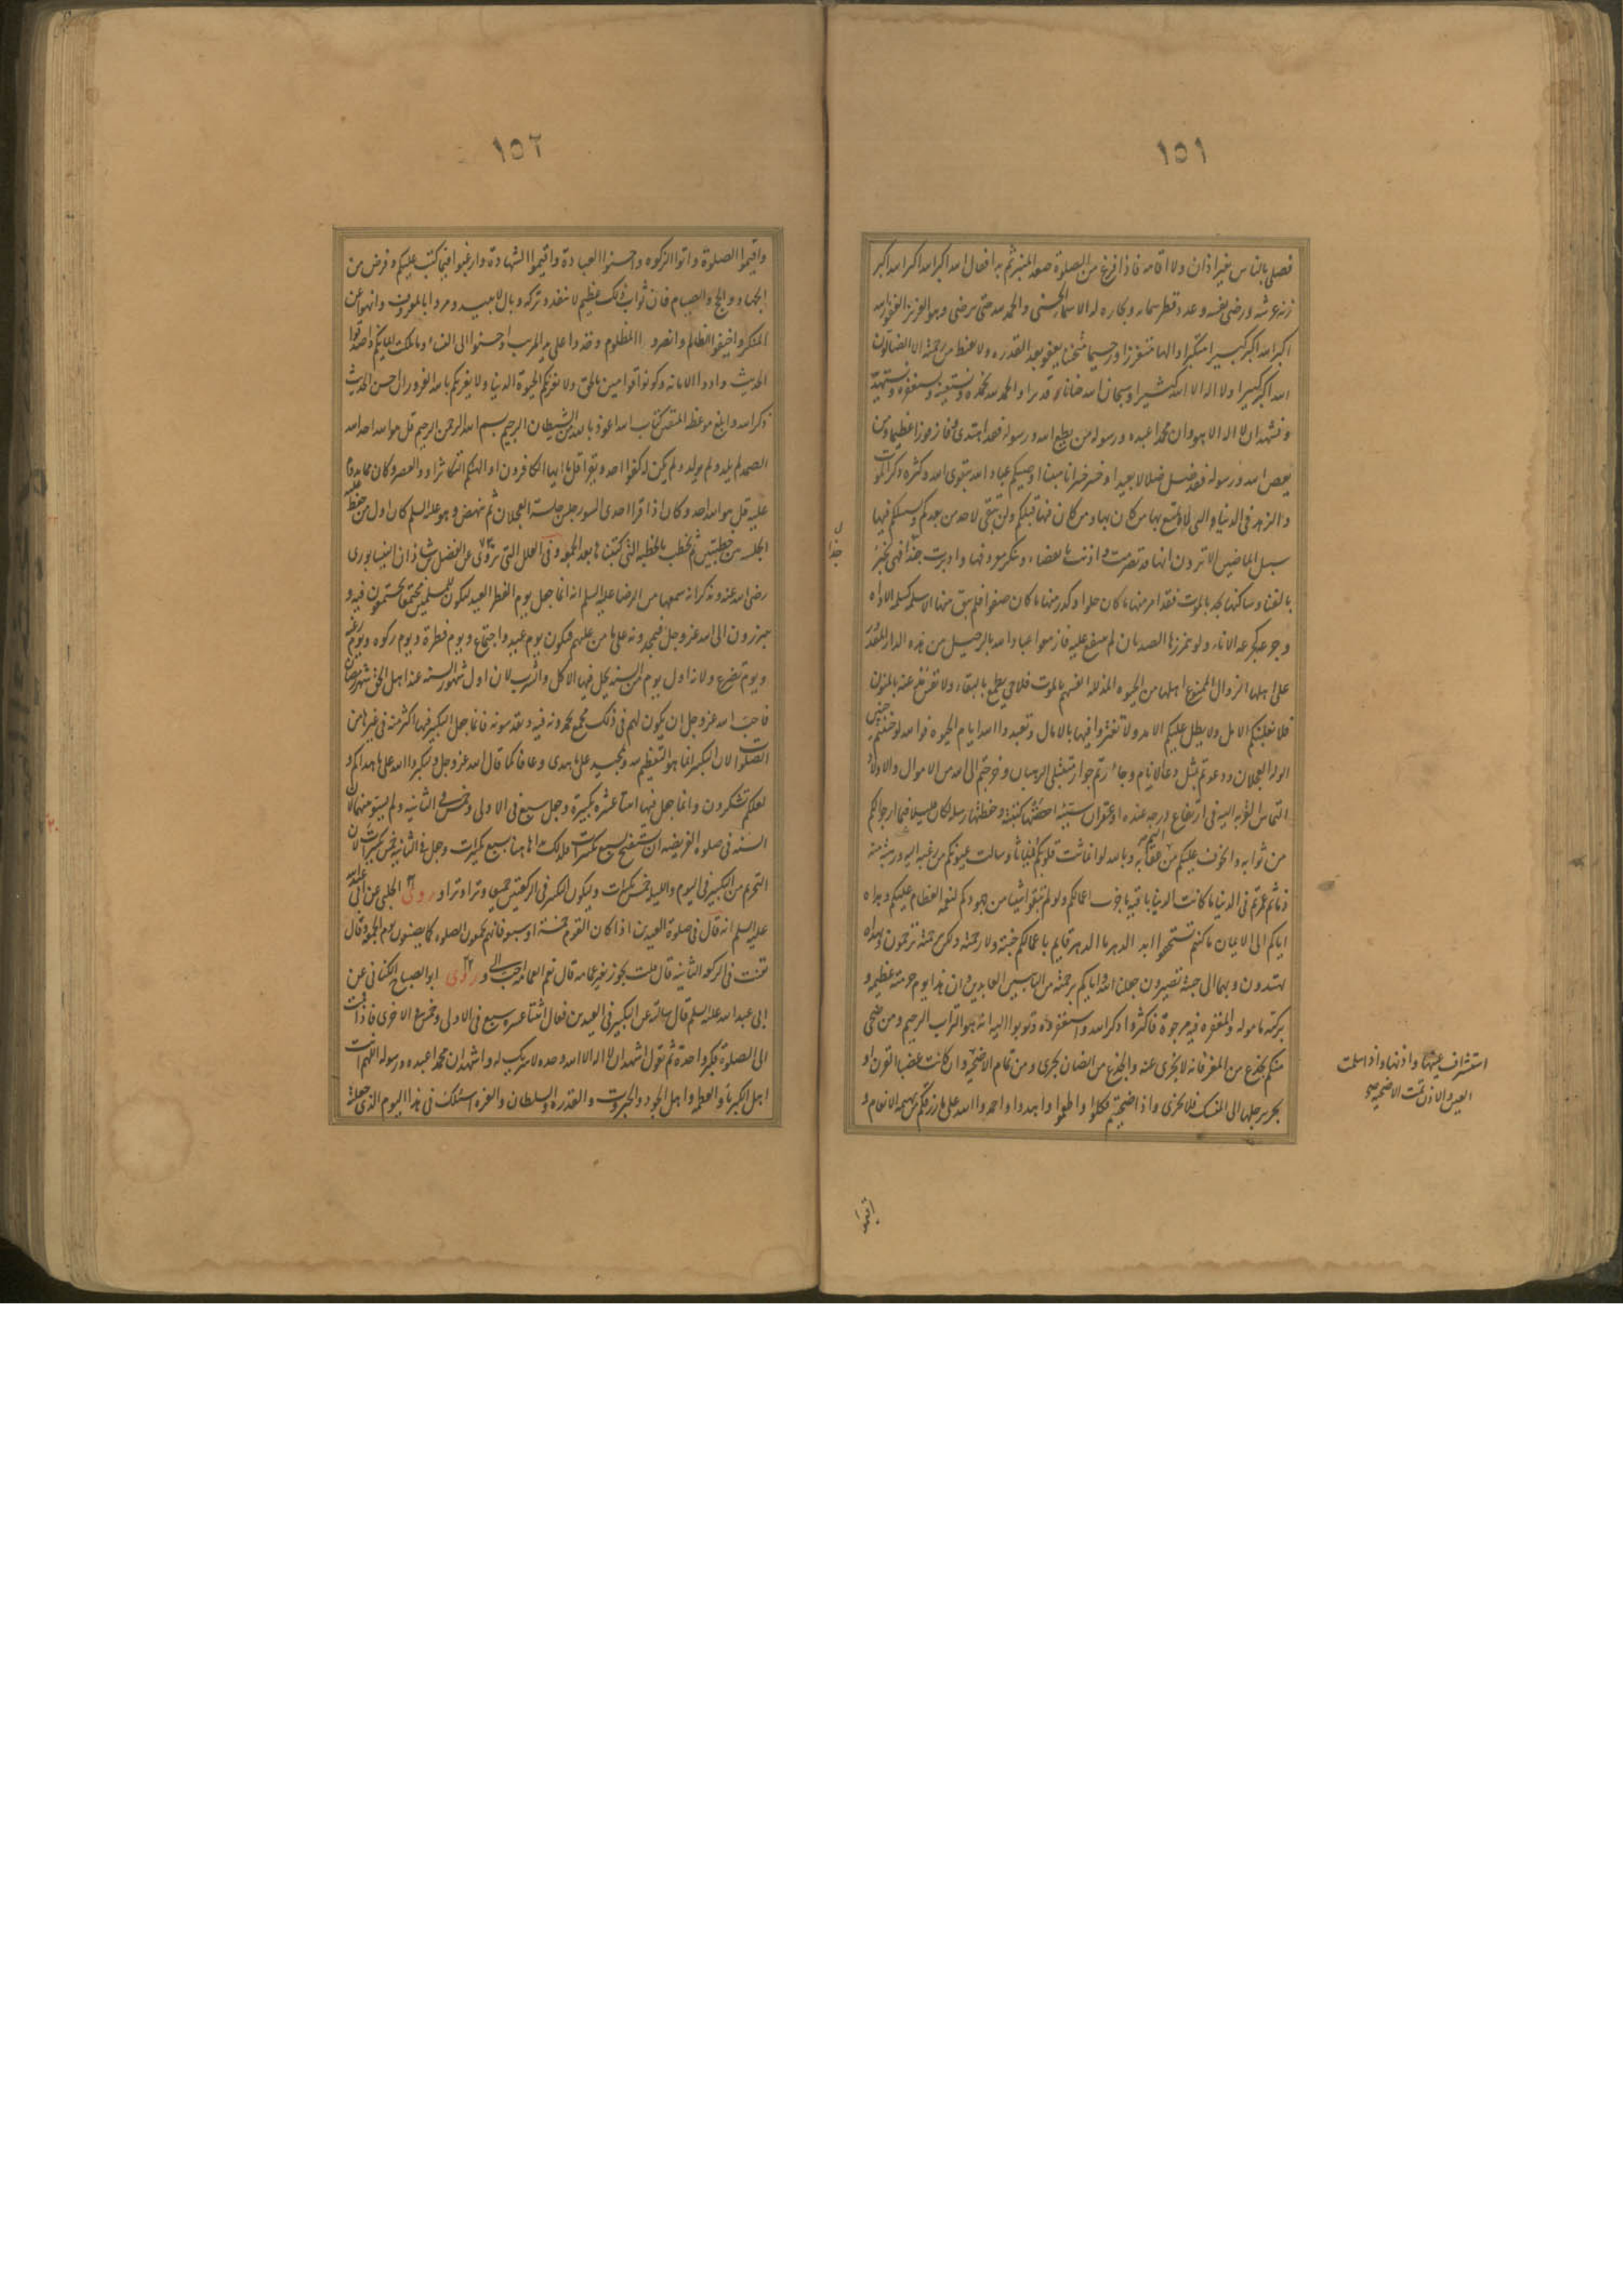 ١٥١
فصلى بالناس بغير اذان ولا اقامة فاذا فرغ من الصلوة صعد المنبر ثم بدا فقال الله اكبر الله اكبر الله اكبر
زنة عرشه ورضى نفسه وعدد قطر سمائه وبحاره له الاسماء الحسنى والحمد لله حتى يرضى وهو العزيز الغفور الله
اكبر الله اكبر كبيرا متكبرا والها متعززا ورحيما متحننا يعفو بعد القدرة ولا يقنط من رحمته الا الضالون
الله اكبر كبيرا ولا اله الا الله كثيرا وسبحان الله حنانا قديرا والحمد لله نحمده ونستعينه ونستغفره ونستهديه
ونشهد ان لا اله الا هو وان محمدا عبده ورسوله من يطع الله ورسوله فقد اهتدى وفاز فوزا عظيما ومن
يعص الله ورسوله فقد ضل ضلالا بعيدا وخسر خسرانا مبينا اوصيكم عباد الله بتقوى الله وكثرة ذكر الموت
والزهد فى الدنيا التى لم يتمتع بها من كان بها ومن كان فيها قبلكم ولن تبقى لاحد من بعدكم وسبيلكم فيها
سبيل الماضين الا ترون انها قد تصرمت واذنت بانقضاء وتنكر معروفها وادبرت جذا فهى تخبر
بالفناء وساكنها يحدى بالموت فقد امر منها ما كان حلوا وكدر منها ما كان صفوا فلم يبق منها الا سملة كسملة الاداوة
وجرعة كجرعة الاناء ولو تمززها الصديان لم تنقع غلته فازمعوا عباد الله بالرحيل من هذه الدار المقدر
على اهلها الزوال الممنوع اهلها من الحيوة المذللة انفسهم بالموت فلا حى يطمع بالبقاء ولا نفس الا مذعنة بالمنون
فلا يغلبنكم الامل ولا يطل عليكم الامد ولا تغتروا فيها بالامال وتعبدوا الله ايام الحيوة فوالله لو حننتم حنين
الوله العجلان ودعوتم بمثل دعاء الانام وجأرتم جؤار متبتلى الرهبان وخرجتم الى الله من الاموال والاولاد
التماس القربة اليه فى ارتفاع درجة عنده او غفران سيئة احصتها كتبته وحفظتها رسله لكان قليلا فيما ارجو لكم
من ثوابه واتخوف عليكم من اليم عقابه وبالله لو انماثت قلوبكم انمياثا وسالت عيونكم من رغبة اليه ورهبة منه
ثم عمرتم فى الدنيا ما كانت الدنيا باقية ما جزت اعمالكم ولو لم تبقوا شيئا من جهدكم لنعمه العظام عليكم وهداه
اياكم الى الايمان ما كنتم تستحقوا ابد الدهر ما الدهر قايم باعمالكم جنته ولا رحمته ولكن برحمته ترحمون وبهداه
تهتدون وبهما الى جنته تصيرون جعلنا الله واياكم برحمته من التائبين العابدين وان هذا يوم حرمته عظيمة و
بركته مامولة والمغفرة فيه مرجوة فاكثروا ذكر الله واستغفروه وتوبوا اليه انه هو التواب الرحيم ومن ضحى
منكم بجذع من المعز فانه لا يجزى عنه والجذع من الضان يجزى ومن تمام الاضحية وان كانت عضباء القرن او
تجر برجلها الى المنسك فلا تجزى واذا ضحيتم فكلوا واطعموا واهدوا واحمدوا الله على ما رزقكم من بهيمة الانعام و
استشراف عينها واذنها واذا سلمت
العين والاذن تمت الاضحية صح
واقيموا
١٥٢
واقيموا الصلوة واتوا الزكوة واحسنوا العبادة واقيموا الشهادة وارغبوا فيما كتب عليكم وفرض من
الجهاد والحج والصيام فان ثواب ذلك عظيم لا ينفد وتركه وبال لا يبيد ومروا بالمعروف وانهوا عن
المنكر واخيفوا الظالم وانصروا المظلوم وخذوا على يد المريب واحسنوا الى النساء وما ملكت ايمانكم واصدقوا
الحديث وادوا الامانة وكونوا قوامين بالحق ولا تغرنكم الحيوة الدنيا ولا يغرنكم بالله الغرور ان احسن الحديث
ذكر الله وابلغ موعظة المتقين كتاب الله اعوذ بالله من الشيطان الرجيم بسم الله الرحمن الرحيم قل هو الله احد الله
الصمد لم يلد ولم يولد ولم يكن له كفوا احد ويقرأ قل يا ايها الكافرون او الهيكم التكاثر او والعصر وكان مما يدوم
عليه قل هو الله احد وكان اذا قرا احدى السور جلس جلسة العجلان ثم نهض وهو عليه السلم كان اول من حفظ عليه
الجلسة بين خطبتين ثم يخطب بالخطبة التى كتبناها بعد الجمعة وفى العلل التى تروى عن الفضل بن شاذان النيسابورى
رضى الله عنه ويذكر انه سمعها من الرضا عليه السلم انه انما جعل يوم الفطر العيد ليكون للمسلمين مجتمعا يجتمعون فيه و
يبرزون الى الله عز وجل فيمجدونه على ما من عليهم فيكون يوم عيد واجتماع ويوم فطر ويوم زكوة ويوم رغبة
ويوم تضرع ولانه اول يوم من السنة يحل فيها الاكل والشرب لان اول شهور السنة عند اهل الحق شهر رمضان
فاحب الله عز وجل ان يكون لهم فى ذلك مجمع يحمدونه فيه ويقدسونه فانما جعل التكبير فيها اكثر منه فى غيرها من
الصلوات لان التكبير انما هو التعظيم لله وتمجيد على ما هدى وعافا كما قال الله عز وجل ولتكبروا الله على ما هداكم و
لعلكم تشكرون وانما جعل فيها اثنتا عشرة تكبيرة وجعل سبع فى الاولى وخمس فى الثانية ولم يسو بينهما لان
السنة فى صلوة الفريضة ان تستفتح بسبع تكبيرات فلذلك بدا هاهنا بسبع تكبيرات وجعل فى الثانية خمس تكبيرات لان
التحريم من التكبير فى اليوم والليلة خمس تكبيرات وليكون التكبير فى الركعتين جميعا وترا وترا وروى الحلبى عن ابى عبد الله
عليه السلم انه قال فى صلوة العيدين اذا كان القوم خمسة او سبعة فانهم يجمعون الصلوة كما يصنعون يوم الجمعة وقال
تقنت فى الركعة الثانية قال قلت يجوز بغير عمامة قال نعم العمامة احب الى وروى ابو الصباح الكنانى عن
ابى عبد الله عليه السلم قال سالته عن التكبير فى العيدين فقال اثنتا عشرة سبع فى الاولى وخمس فى الاخرى فاذا قمت
الى الصلوة فكبر واحدة ثم تقول اشهد ان لا اله الا الله وحده لا شريك له واشهد ان محمدا عبده ورسوله اللهم انت
اهل الكبرياء والعظمة واهل الجود والجبروت والقدرة والسلطان والعزة اسئلك فى هذا اليوم الذى جعلته